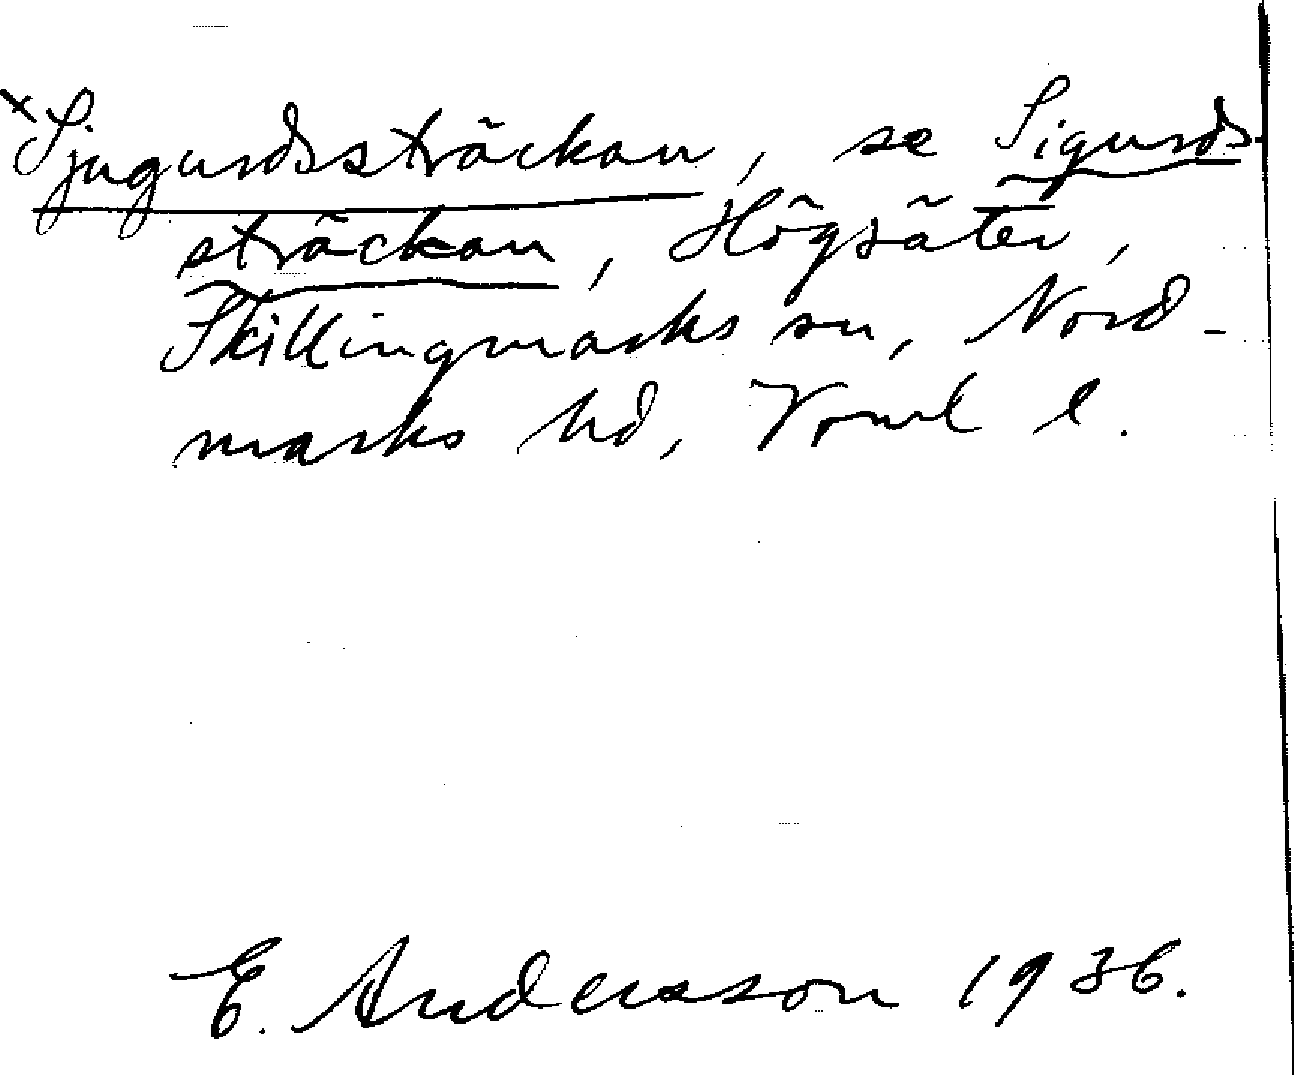 × Sjugurdssträckan, se Sigurds-
sträckan, Högsäter,
Skillingmarks sn, Nord-
marks hd, Vrml l.
E. Andersson 1936.